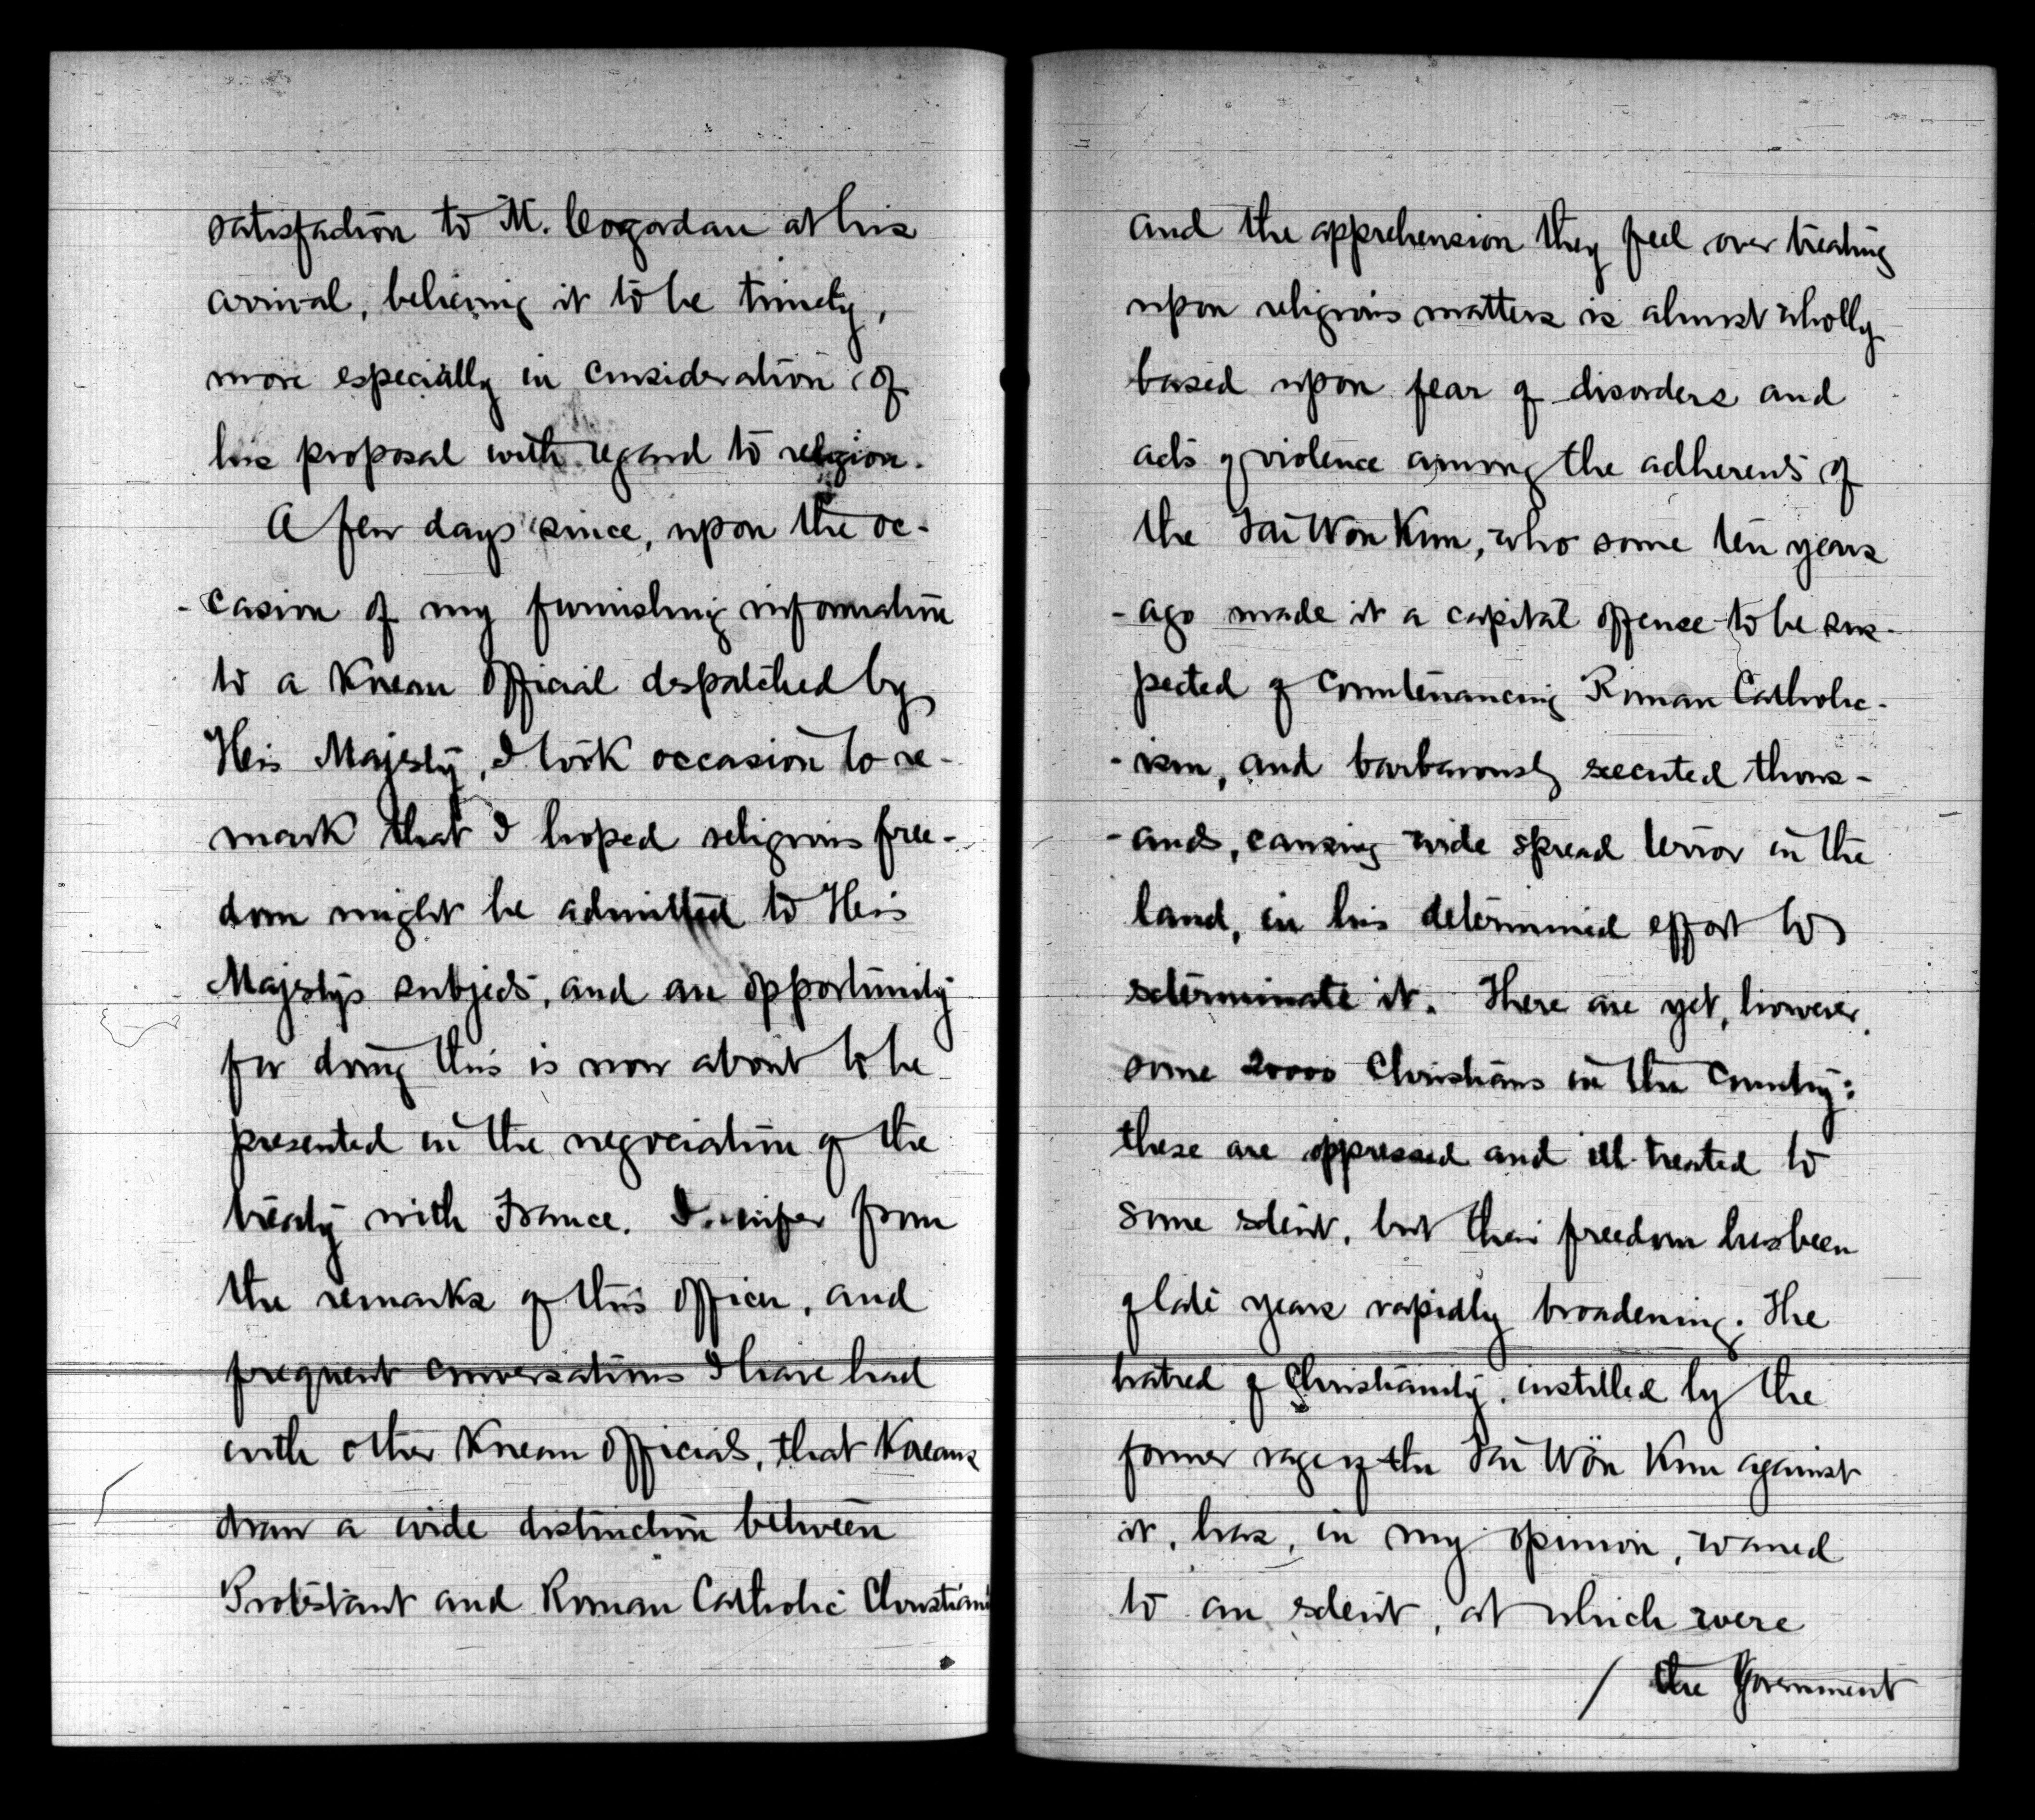 satisfaction to M. Cogordan at his
arrival, believing it to be timely,
more especially in consideration of
his proposal with regard to religion.
A few days since, upon the oc-
-casion of my furnishing information
to a Korean Official despatched by
His Majesty, I took occasion to re-
mark that I hoped religious free-
dom might be admitted to His
Majesty's subjects, and an opportunity
for doing this is now about to be
presented in the negociation of the
treaty with France. I infer from
the remarks of this officer, and
frequent conversations I have had
with other Korean Officials, that Koreans
draw a wide distinction between
Protestant and Roman Catholic Christians
and the apprehension they feel over treating
upon religious matters is almost wholly
based upon fear of disorders and
acts of violence among the adherents of
the Tai Wön Kun, who some ten years
-ago made it a capital offence to be sus-
pected of countenancing Roman Catholic-
-ism, and barbarously executed thous-
-ands, causing wide spread terror in the
land, in his determined effort to
exterminate it. There are yet, however,
some 20000 Christians in the Country:
these are oppressed and ill-treated to
some extent, but their freedom has been
of late years rapidly broadening. The
hatred of Christianity, instilled by the
former rage of the Tai Wön Kun against
it, has, in my opinion, waned
to an extent, at which were
/ the Government